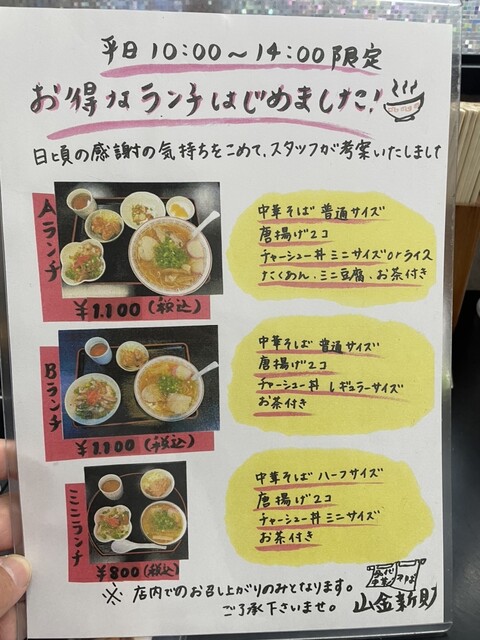 平日10:00～14:00限定
お得なランチはじめました！
日頃の感謝の気持ちをこめて、スタッフが考案いたしまして
Aランチ
¥1.100(税込)
中華そば 普通サイズ
唐揚げ2コ
チャーシュー丼 ミニサイズorライス
たくあん、ミニ豆腐、お茶付き
Bランチ
¥1.100(税込)
中華そば 普通サイズ
唐揚げ2コ
チャーシュー丼 レギュラーサイズ
お茶付き
ミニランチ
¥800(税込)
中華そば ハーフサイズ
唐揚げ2コ
チャーシュー丼 ミニサイズ
お茶付き
※ 店内でのお召し上がりのみとなります。
ご了承下さいませ。